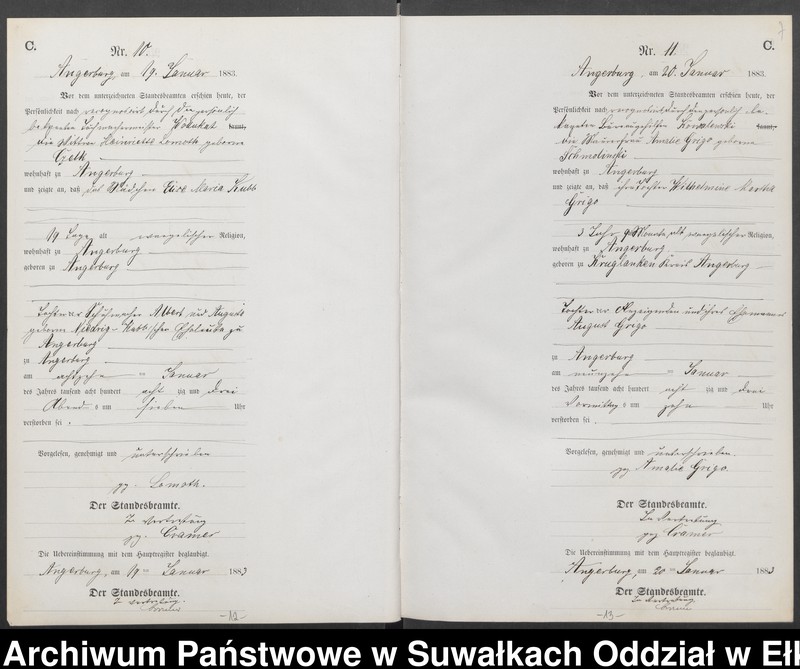 C.
Nr. 10.
Angerburg, am 19. Januar 1883.
Vor dem unterzeichneten Standesbeamten erschien heute, der
Persönlichkeit nach, recognoscirt durch den persönlich
bekannten Wachtmeister kannt,
die Wittwe Henriette Lomoth geborne
Czelk
wohnhaft zu Angerburg
und zeigte an, daß das Mädchen Maria Kubb
19 Tage alt evangelischer Religion,
wohnhaft zu Angerburg
geboren zu Angerburg
Tochter Schuhmacher Albert und Auguste
geborne Kubbschen Eheleute zu
Angerburg
zu Angerburg
am achtzehn ten Januar
des Jahres tausend acht hundert acht zig und drei
Abends um sieben Uhr
verstorben sei.
Vorgelesen, genehmigt und unterschrieben
gz. Lomoth.
Der Standesbeamte.
In Vertretung
gz. Cramer
Die Uebereinstimmung mit dem Hauptregister beglaubigt.
Angerburg, am 19ten Januar 1883
Der Standesbeamte.
In Vertretung.
Cramer
-12-
7
Nr. 11. C.
Angerburg, am 20. Januar 1883.
Vor dem unterzeichneten Standesbeamten erschien heute, der
Persönlichkeit nach, recognoscirt durch den persönlich be-
kannten Bureaugehilfen Kowalewski kannt,
die Maurerfrau Amalie Grigo geborne
Schmolinski
wohnhaft zu Angerburg
und zeigte an, daß ihre Tochter Wilhelmine Martha
Grigo
3 Jahr, 9 Monate alt evangelischer Religion,
wohnhaft zu Angerburg
geboren zu Kruglanken Kreis Angerburg
Tochter der Anzeigenden und ihres Ehemannes
August Grigo
zu Angerburg
am neunzehn ten Januar
des Jahres tausend acht hundert acht zig und drei
Vormittags um zehn Uhr
verstorben sei.
Vorgelesen, genehmigt und unterschrieben.
gz. Amalie Grigo.
Der Standesbeamte.
In Vertretung
gz. Cramer
Die Uebereinstimmung mit dem Hauptregister beglaubigt.
Angerburg, am 20ten Januar 1883
Der Standesbeamte.
In Vertretung
Cramer
-13-
Archiwum Państwowe w Suwałkach Oddział w Eł